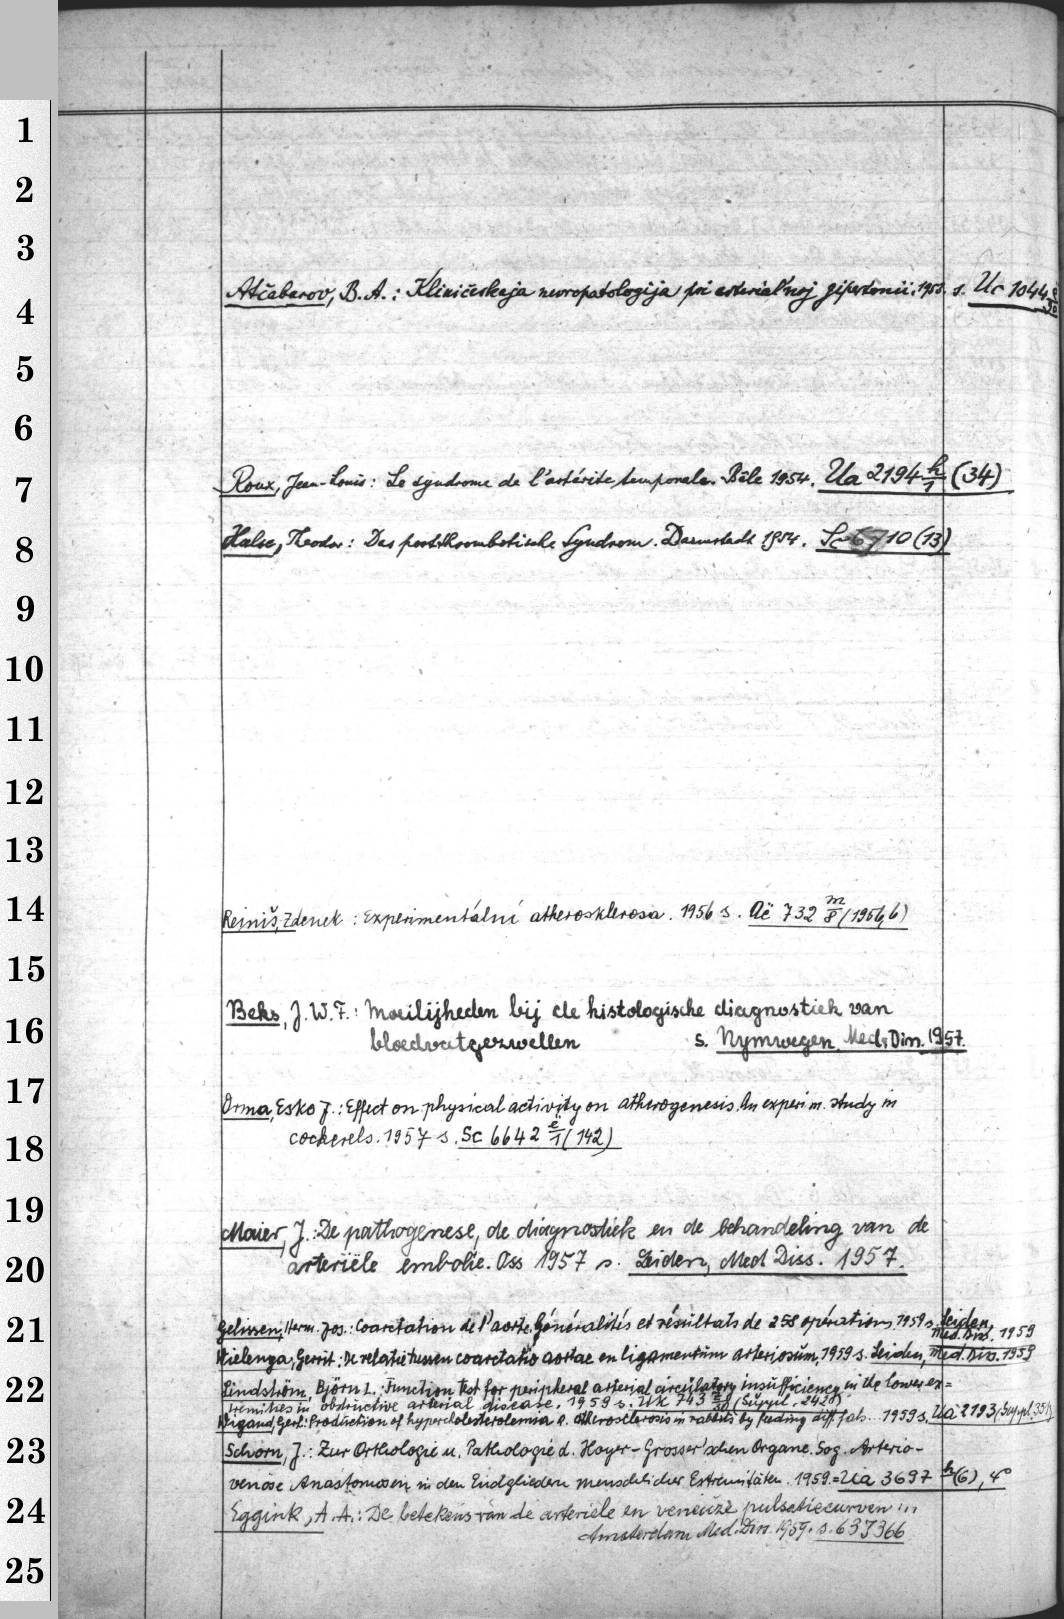 1
2
3
4
5
6
7
8
9
10
11
12
13
14
15
16
17
18
19
20
21
22
23
24
25
Atčabarov, B.A.: Kliničeskaja nevropatologija pri arterial'noj gipertonii. s. Uc 1044
Roux, Jean-Louis: Le syndrome de l'artérite temporale. Bâle 1954. Ua 2194 h/1 (34)
Halse, Theodor: Das postthrombotische Syndrom. Darmstadt 1954. Sc 6710 (13)
Reiniš, Zdenek: Experimentální atherosklerosa. 1956 s. Uč 732 m/8 (1956,6)
Beks, J.W.F.: Moeilijheden bij de histologische diagnostiek van
bloedvatgezwellen s. Nymwegen, Med. Diss. 1957.
Orma, Esko J.: Effect on physical activity on atherogenesis. An experim. study in
cockerels. 1957 s. Sc 6642 e/1 (142)
Maier, J.: De pathogenese, de diagnostiek en de behandeling van de
arteriële embolie. Oss 1957 s. Leiden, Med Diss. 1957.
Gelissen, Herm. Jos.: Coarctation de l'aorte. Généralités et résultats de 258 opérations. 1959 s. Leiden,
Med. Diss. 1959
Wielenga, Gerrit: De relatie tussen coarctatio aortae en ligamentum arteriosum. 1959 s. Leiden, Med. Diss. 1959
Lindström, Björn L.: Function test for peripheral arterial circulatory insufficiency in the lower ex=
tremities in obstructive arterial disease. 1959 s. Uk 743 (Suppl. 242)
Wigand, Gerl: Production of hypercholesterolemia a. atherosclerosis in rabbits by feeding diff. fats. 1959 s. Ua 2193 (Suppl. 351)
Schorn, J.: Zur Orthologie u. Pathologie d. Hoyer-Grosser'schen Organe. Sog. Arterio-
venöse Anastomosen in den Endgliedern menschlicher Extremitäten. 1959. = Ua 3697 h (6), 4°
Eggink, A.A.: De betekenis van de arteriele en veneuze pulsatiecurven ...
Amsterdam Med. Diss. 1959. s. 637366